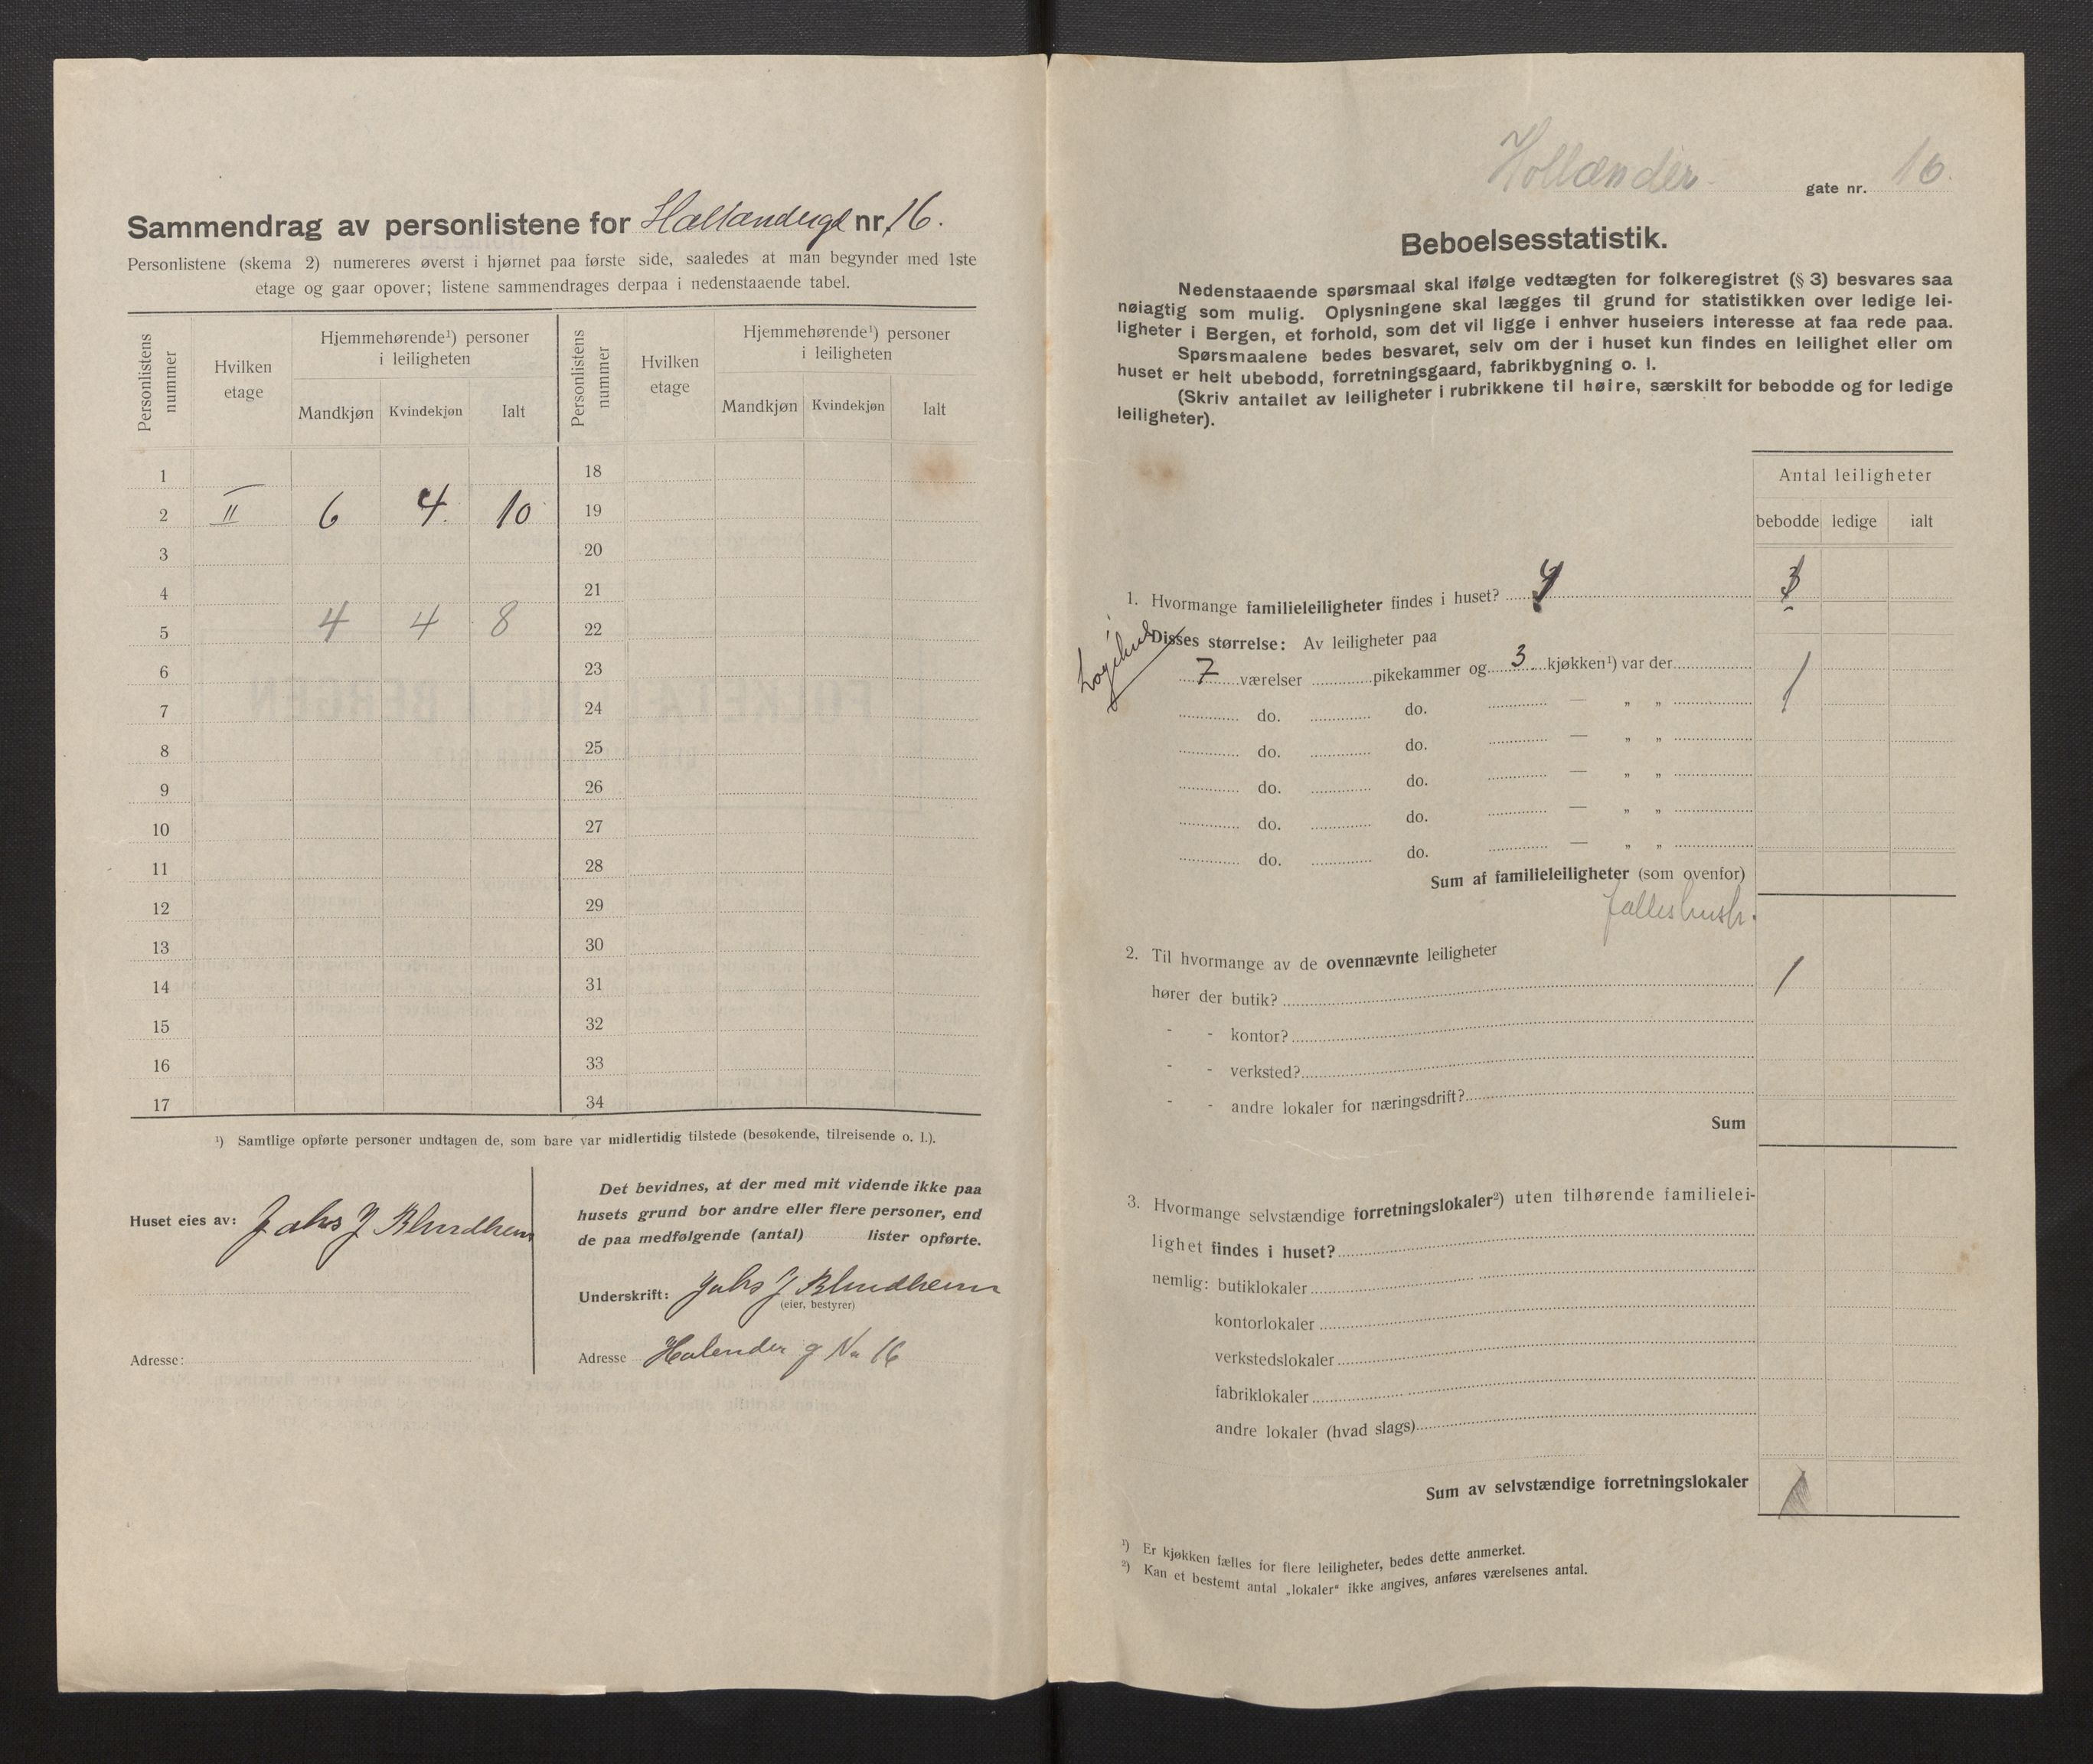 Sammendrag av personlistene for Hollendergt nr. 16.
Personlistene (skema 2) numereres øverst i hjørnet paa første side, saaledes at man begynder med 1ste
etage og gaar opover; listene sammendrages derpaa i nedenstaaende tabel.
Personlistens nummer
Hvilken etage
Hjemmehørende¹) personer i leiligheten
Mandkjøn Kvindekjøn Ialt
Personlistens nummer
Hvilken etage
Hjemmehørende¹) personer i leiligheten
Mandkjøn Kvindekjøn Ialt
1 18
2 II 6 4. 10 19
3 20
4 21
5 4 4 8 22
6 23
7 24
8 25
9 26
10 27
11 28
12 29
13 30
14 31
15 32
16 33
17 34
¹) Samtlige opførte personer undtagen de, som bare var midlertidig tilstede (besøkende, tilreisende o. l.).
Huset eies av: Johs J Blindheim
Adresse:
Det bevidnes, at der med mit vidende ikke paa
husets grund bor andre eller flere personer, end
de paa medfølgende (antal) lister opførte.
Underskrift: Johs J Blindheim
(eier, bestyrer)
Adresse Holender g No 16
Hollænder gate nr. 16.
Beboelsesstatistik.
Nedenstaaende spørsmaal skal ifølge vedtægten for folkeregistret (§ 3) besvares saa
nøiagtig som mulig. Oplysningene skal lægges til grund for statistikken over ledige lei-
ligheter i Bergen, et forhold, som det vil ligge i enhver huseiers interesse at faa rede paa.
Spørsmaalene bedes besvaret, selv om der i huset kun findes en leilighet eller om
huset er helt ubebodd, forretningsgaard, fabrikbygning o. l.
(Skriv antallet av leiligheter i rubrikkene til høire, særskilt for bebodde og for ledige
leiligheter).
Antal leiligheter
bebodde ledige ialt
1. Hvormange familieleiligheter findes i huset?
Disses størrelse: Av leiligheter paa
7 værelser pikekammer og 3 kjøkken¹) var der 1
do. do. — „ „
do. do. — „ „
do. do. — „ „
do. do. — „ „
do. do. — „ „
Sum af familieleiligheter (som ovenfor)
fælleshush.
2. Til hvormange av de ovennævnte leiligheter
hører der butik? 1
- - kontor?
- - verksted?
- - andre lokaler for næringsdrift?
Sum
3. Hvormange selvstændige forretningslokaler²) uten tilhørende familielei-
lighet findes i huset?
nemlig: butiklokaler
kontorlokaler
verkstedslokaler
fabriklokaler
andre lokaler (hvad slags)
Sum av selvstændige forretningslokaler
¹) Er kjøkken fælles for flere leiligheter, bedes dette anmerket.
²) Kan et bestemt antal „lokaler“ ikke angives, anføres værelsenes antal.